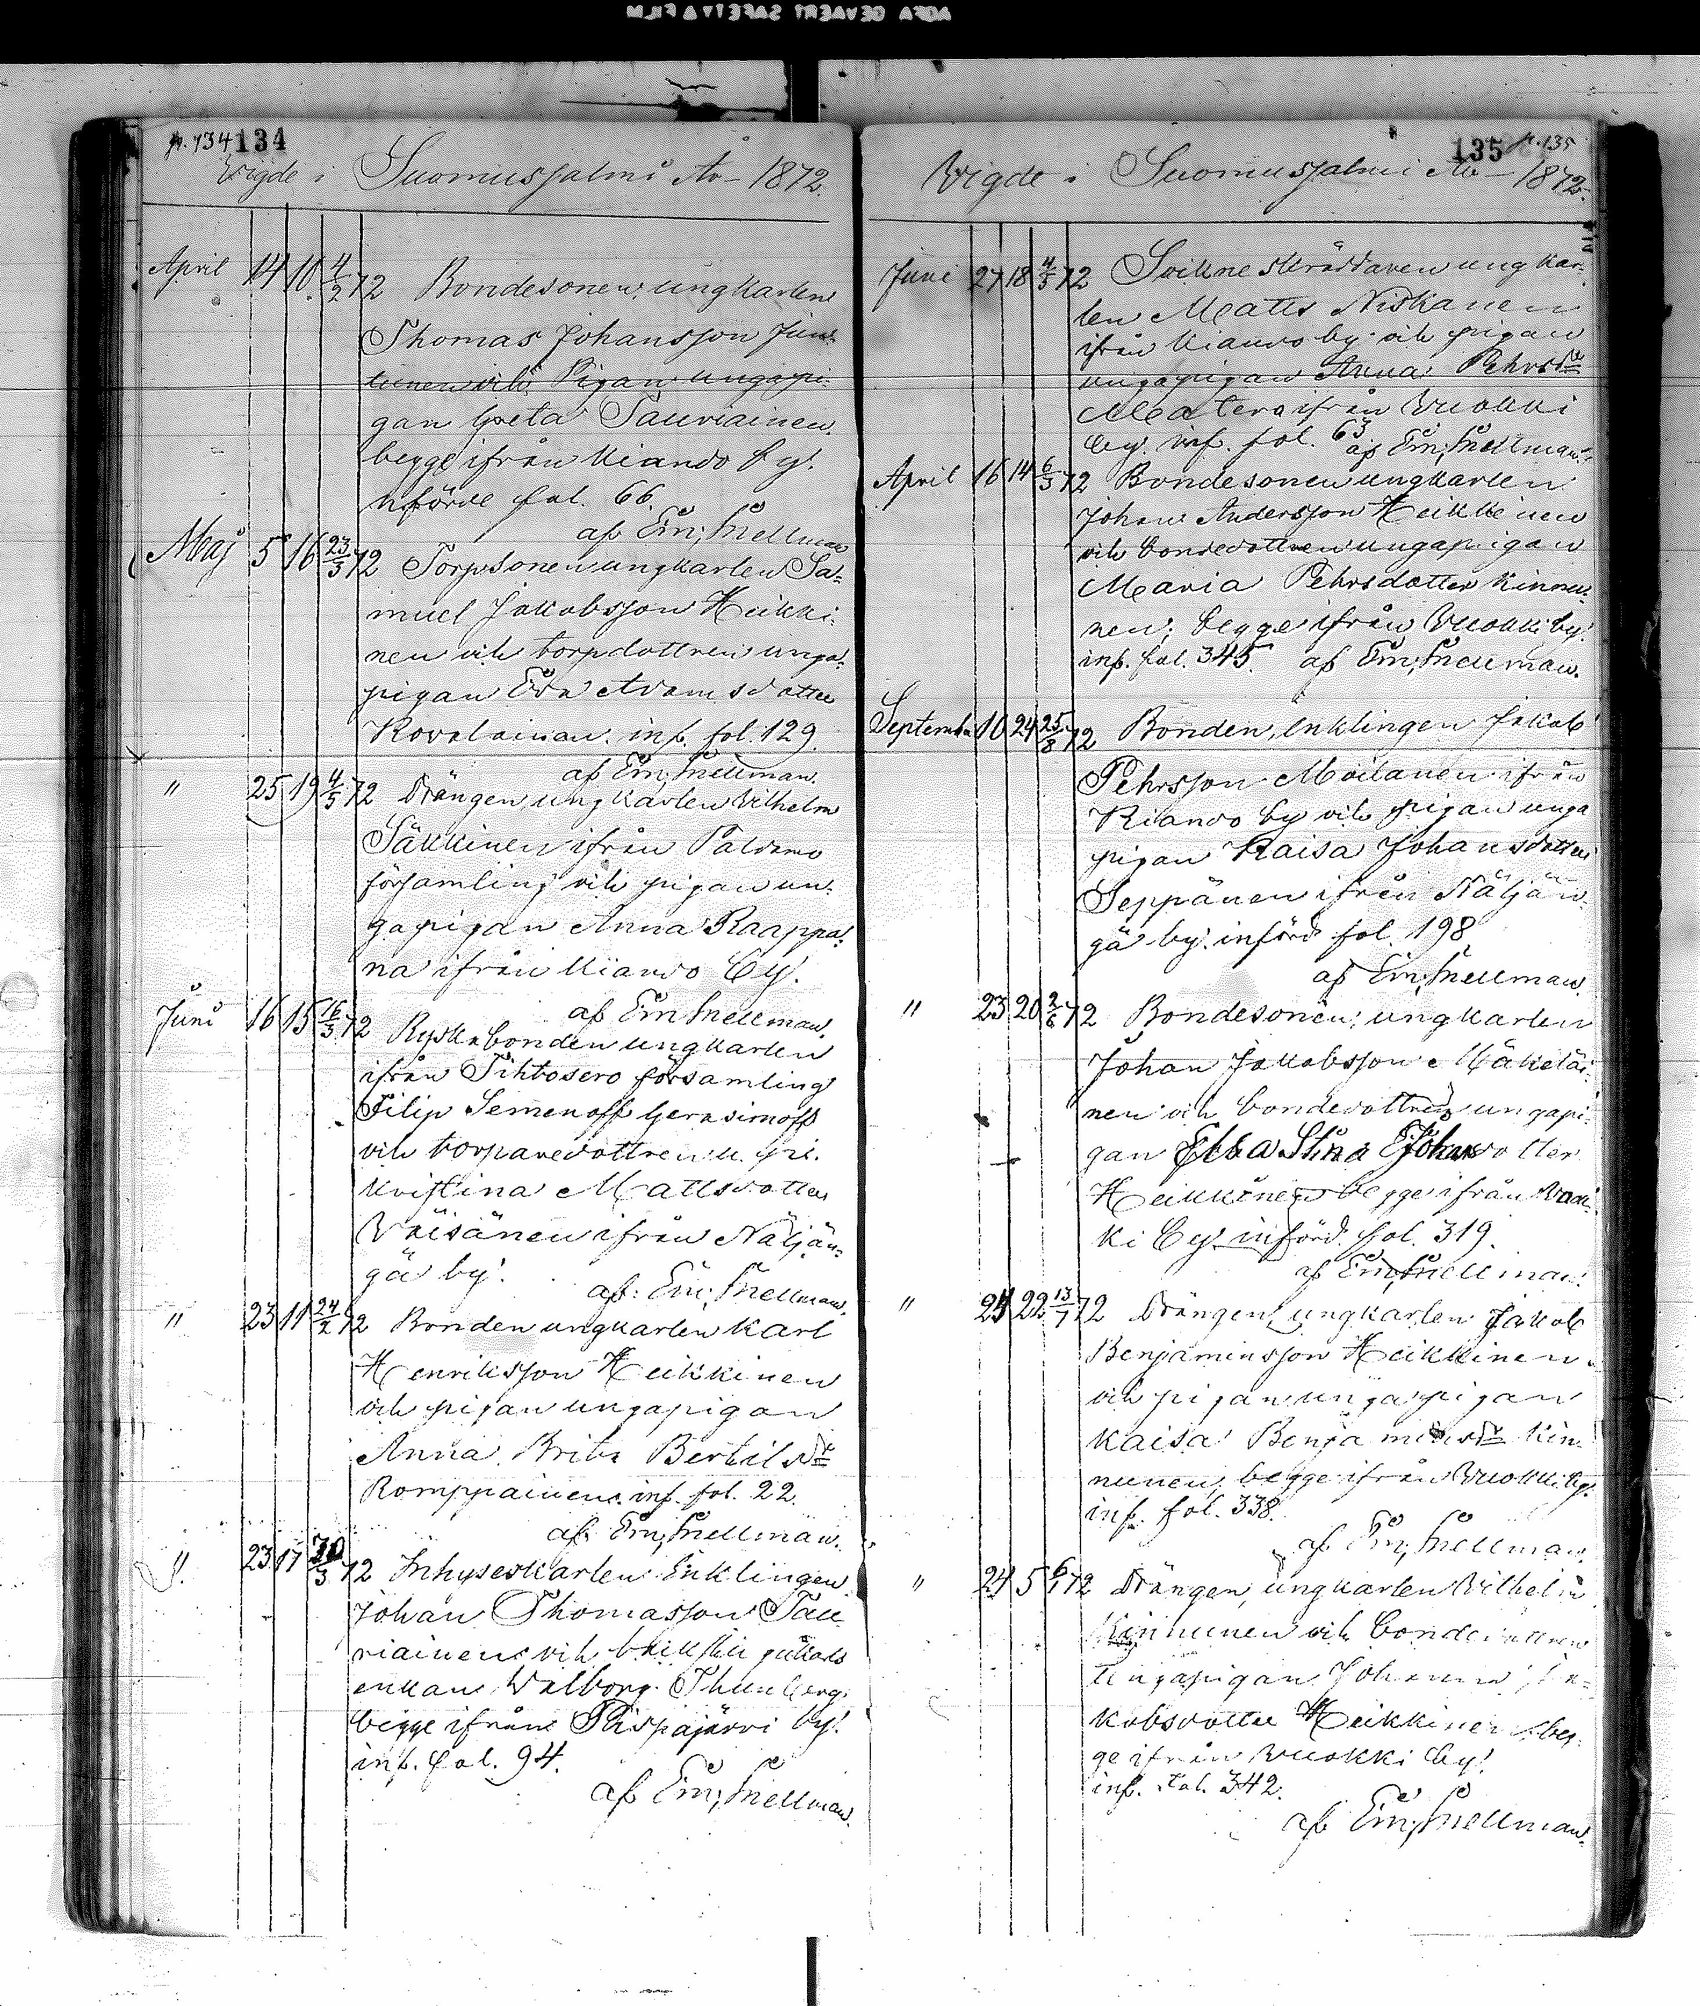 AGFA GEVAERT SAFETY A FILM
p. 134 134
Vigde i Suomusjalmi År 1872.
April 14 10 4/2 72 Bondesonen, ungkarlen
Thomas Johansson Jun-
tunen vih Pigan ungapi-
gan Greta Tauriainen
begge ifrån Kiando by.
införde fol. 66.
af Em; Snellman
Maj 5 16 23/3 72 Torpsonen ungkarlen Sa-
muel Jakobsson Heikki-
nen vih torpdottren unga-
pigan Eva Adamsdotter
Kovalainan. inf. fol. 129.
af Em; Snellman
" 25 19 4/5 72 Drängen ungkarlen Vilhelm
Säkkinen ifrån Paldamo
församling vih pigan un-
gapigan Anna Raappa-
na ifrån Kiando by.
af Em Snellman
Juni 16 15 16/3 72 Ryska bonden ungkarlen
ifrån Tihtosero församling
Filip Semenoff Gerasimoff
vih torparedottren u. pi.
Kristina Mattsdotter
Väisänen ifrån Näljän-
gä by.
af: Em; Snellman.
" 23 11 24/2 72 Bonden ungkarlen Karl
Henriksson Heikkinen
vih pigan ungapigan
Anna Brita Bertilsdr
Romppainen. inf. fol. 22.
af Em; Snellman.
" 23 17 30/3 72 Inhyseskarlen Enklingen
Johan Thomasson Tau-
riainen vih
enkan Valborg Thunberg
begge ifrån Pispajärvi by.
inf. fol. 94.
af Em; Snellman.
135 p. 135
Vigde i Suomusjalmi År 1872.
Juni 27 18 4/5 72 Sockne skräddaren ungkar-
len Matts Niskanen
ifrån Kiando by vih pigan
ungapigan Anna Pehrsdr
Matero ifrån Vuokki
by. inf. fol. 63
af Em; Snellman.
April 16 14 6/3 72 Bondesonen ungkarlen
Johan Andersson Heikkinen
vih bondedottren ungapigan
Maria Pehrsdotter Kinnu-
nen; begge ifrån Vuokki by.
inf. fol. 345 af Em; Snellman.
September 10 24 25/8 72 Bonden, Enklingen Jakob
Pehrsson Moilanen ifrån
Kiando by vih pigan unga
pigan Kaisa Johansdotter
Seppänen ifrån Näljän-
gä by. införd fol. 198
af Em; Snellman.
" 23 20 2/6 72 Bondesonen, ungkarlen
Johan Jakobsson Mäkeläi-
nen vih bondedottren ungapi-
gan Elsa Stina Johansdotter
Heikkinen begge ifrån Vuok-
ki by införd. fol. 319.
af Em; Snellman.
" 24 22 13/7 72 Drängen, ungkarlen Jakob
Benjaminsson Heikkinen
vih pigan ungapigan
Kaisa Benjaminsdr Kin-
nunen, begge ifrån Vuokki by.
inf. fol. 338.
af Em; Snellman.
" 24 5 6/1 72 Drängen, ungkarlen Vilhelm
Kinnunen vih bondedottren
ungapigan Johanna Ja-
kobsdotter Heikkinen beg-
ge ifrån Vuokki by.
inf. Fol. 342.
af Em; Snellman.